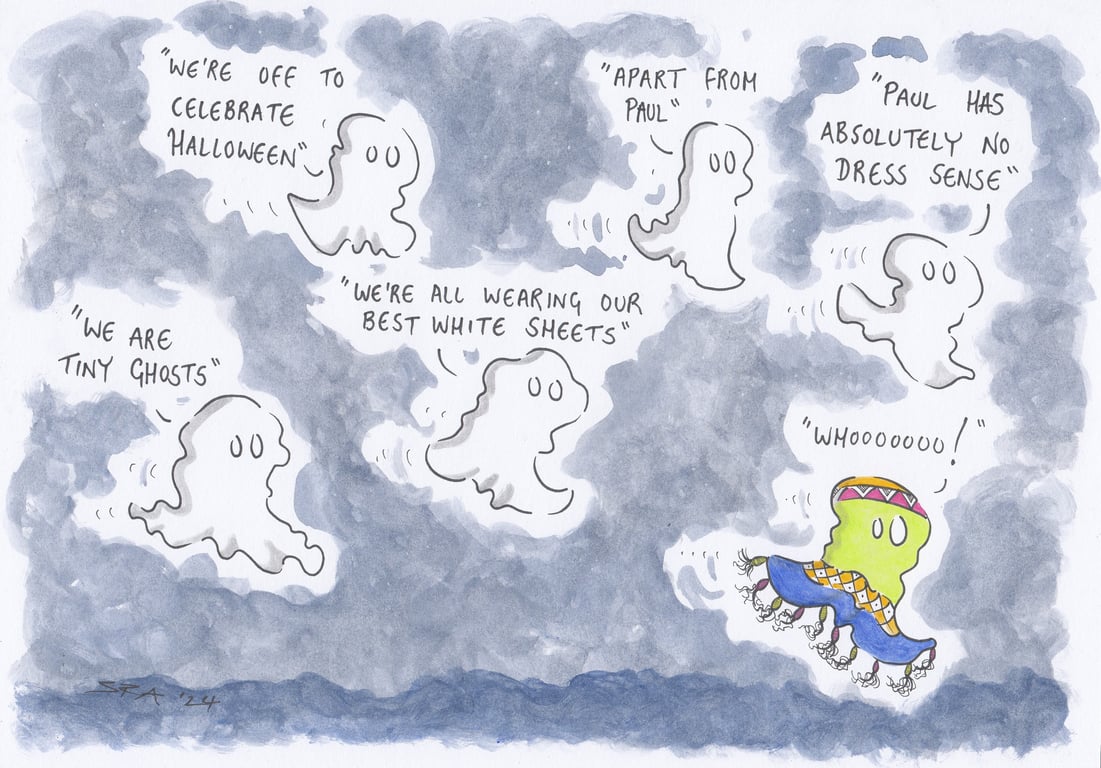 "WE ARE
TINY GHOSTS"
"WE'RE OFF TO
CELEBRATE
HALLOWEEN"
"WE'RE ALL WEARING OUR
BEST WHITE SHEETS"
"APART FROM
PAUL"
"PAUL HAS
ABSOLUTELY NO
DRESS SENSE"
"WHOOOOOOO!"
SRA '24